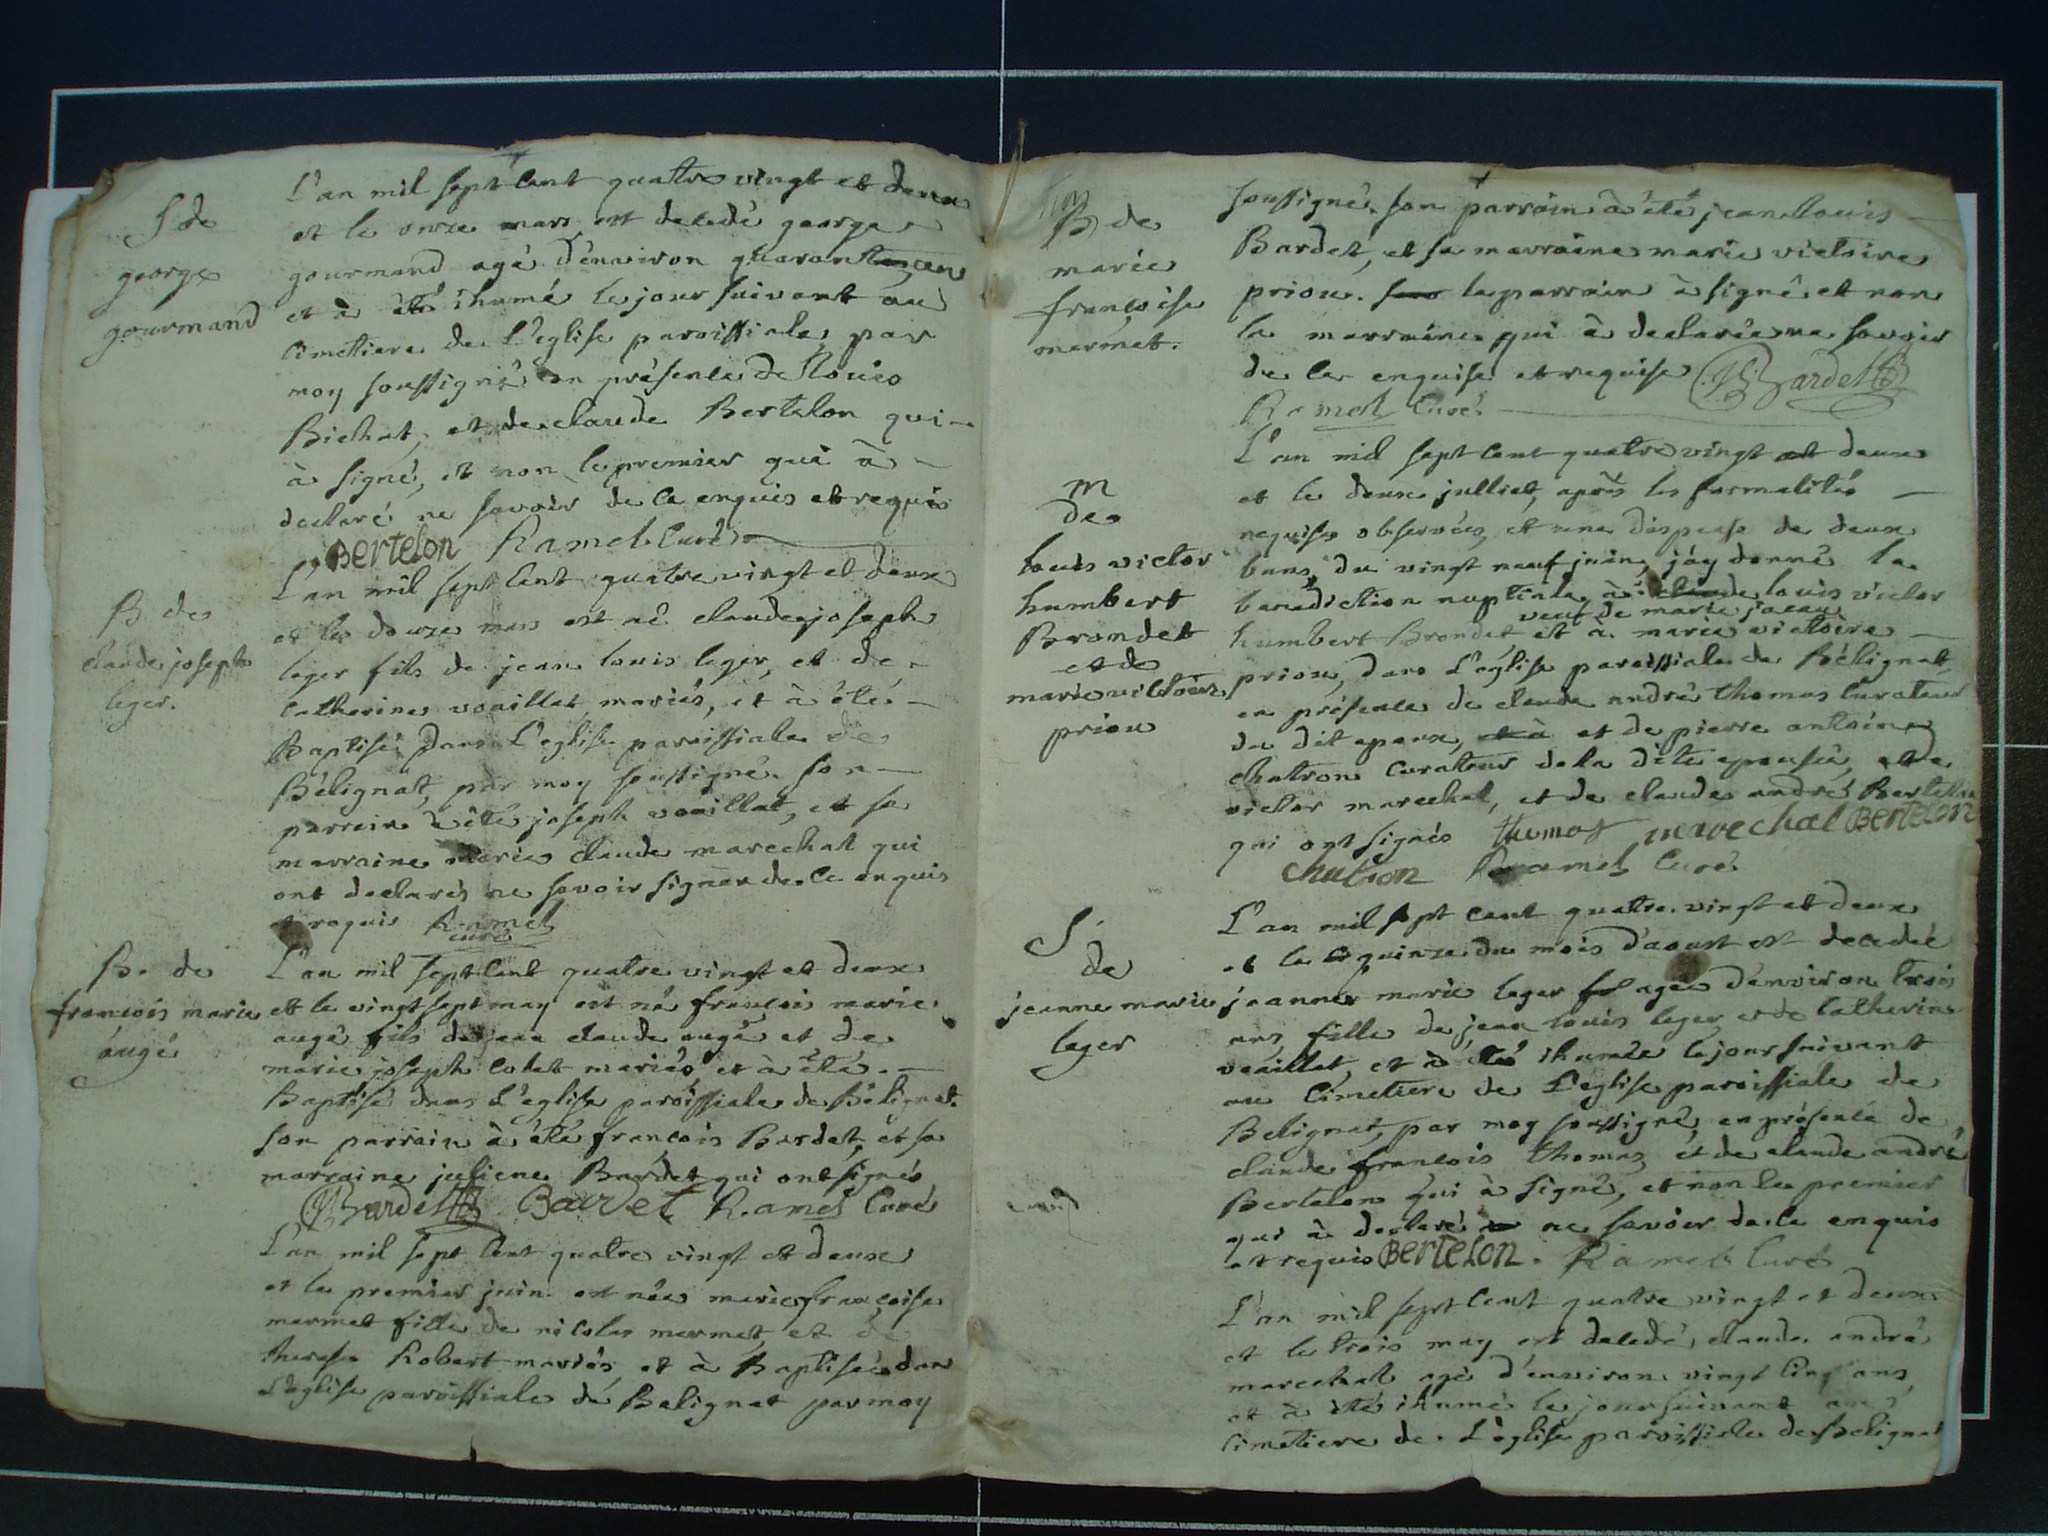 S de
george
gourmand
L'an mil sept cent quatre vingt et deux
et le onze mars est decedé george
gourmand agé d'environ quarante ans
et à été ihumé le jour suivant au
cimetiere de L'eglise paroissiale, par
moy soussigné en présence de Louis
Bichat, et de claude Bertelon qui
à signé, et non le premier qui à
declaré ne savoir de ce enquis et requis
Bertelon Ramel Curé
B de
claude joseph
leger.
L'an mil sept cent quatre vingt et deux
et le douze mars est né claude joseph
leger fils de jean louis leger, et de
catherine vouillat, mariés, et à été
Baptisé dans L'eglise paroissiale de
Bélignat, par moy soussigné. son
parrain à été joseph vouillat, et sa
marraine marie claude marechal qui
ont declarés ne savoir signer de ce enquis
et requis Ramel
curé
B. de
francois marie
augé
L'an mil sept cent quatre vingt et deux
et le vingt sept may est né francois marie
augé fils de jean claude augé et de
marie joseph colet mariés et à été
Baptisé dans L'eglise paroissiale de Bélignat.
son parrain à été francois Bardet, et sa
marraine juliene Bardet qui ont signés
Bardet Bardet Ramel Curé
L'an mil sept cent quatre vingt et deux
et le premier juin est née marie francoise
mermet fille de nicolas mermet, et de
therese Robert mariés, et à Baptisée dans
L'eglise paroissiale de Belignat par moy
B de
marie
francoise
mermet.
soussigné. son parrain à été jean Louis
Bardet, et sa marraine marie victoire
priou. le parrain à signé et non
la marraine qui à declarée ne savoir
de ce enquise et requise Bardet
Ramel Curé.
m
de
louis victor
humbert
Brondet
et de
marie victoire
priou
L'an mil sept cent quatre vingt et deux
et le deux julliet, après les formalités
requises observées, et une dispense de deux
bans, du vingt neuf juin, j'ay donné la
benediction nuptiale à louis victor
veuf de marie
humbert Brondet et à marie victoire
priou, dans L'eglise paroissiale de Bélignat
en présence de claude andré thomas curateur
du dit epoux, et de pierre antoine
chatron curateur de la dite epouse, et de
victor marechal, et de claude andré Bertelon
qui ont signés thomas marechal Bertelon
chatron Ramel Curé
S.
de
jeanne marie
leger
L'an mil sept cent quatre vingt et deux
et le quinze du mois d'aoust est decedée
jeanne marie leger agée d'environ trois
ans, fille de jean louis leger et de catherine
vouillat, et à été ihumée le jour suivant
au cimetiere de L'eglise paroissiale de
Belignat, par moy soussigné, en présence de
claude francois thomas, et de claude andré
Bertelon qui à signé, et non le premier
qui à declaré ne savoir de ce enquis
et requis Bertelon. Ramel Curé
L'an mil sept cent quatre vingt et deux
et le trois may est decedé, claude andré
marechal agé d'environ vingt cinq ans,
et à été ihumé le jour suivant au
cimetiere de L'eglise paroissiale de Belignat